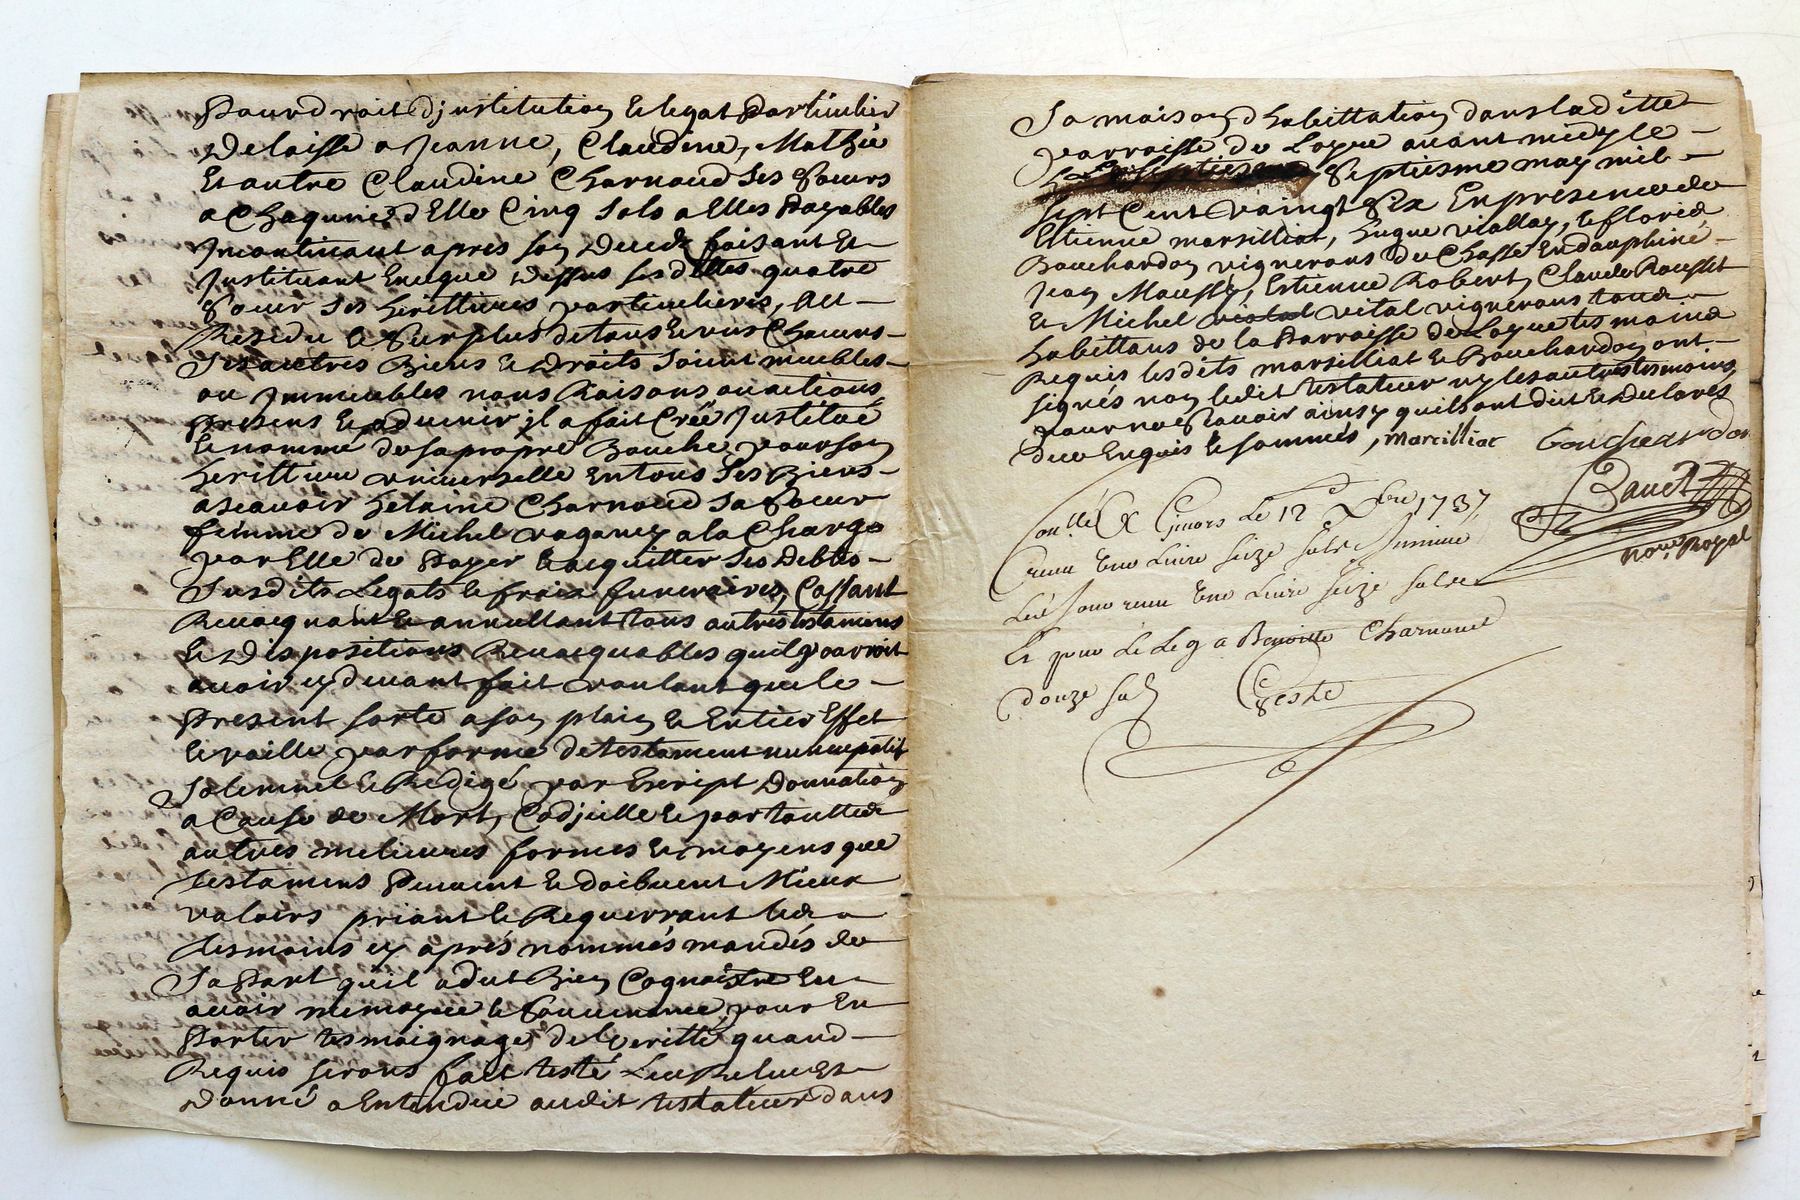 Pour droit djnstitution Et legat Particulier
Delaisse a Jeanne, Claudine, Mathie
Et autre Claudine Charnaud Ses Soeurs
a Chaqunes d'Elle Cinq Sols a Elles Payables
Jncontinant apres son Deceds faisant Et
Jnstituant En eque Dessus sesdittes quatre
Soeur Ses herittieres particulieres, Au
Residu Et Surplus de tous
Ses autres Biens Et Droits Soient meubles
ou Jmmeubles noms Raisons ou actions
Presens Et advenir il a fait Creé Jnstitué
Et nommé de sa propre Bouche pour son
herittiere universelle En tous Ses Biens
ascauoir helaine Charnaud Sa Soeur
femme de Michel vaganey a la Charge
par Elle de Payer Et acquitter Ses Debtes
Susdits Legats Et fraix funeraires, Cassant
Revocquant Et annullant tous autres testamens
Et Dispositions Revocquables quil pourroit
avoir cy devant fait voulant que le
Present sorte a son plain Et Entier Effet
Et vaille par forme de testament nuncupatif
Solemnel Et Redigé par Escript Donnation
a Cause de Mort, Codjcille Et par touttes
autres melieures formes Et moyens que
testamens Peuvent Et doibvent Mieux
valoirs priant Et Requerrant les
tesmoins cy aprés nommés mandés de
Sa Part qu'il a dit Bien Cognoistre En
avoir memoyre Et Souvenance, pour En
Porter tesmoignage de Veritté quand
Requis serons fait testé Leu Releu Et
Donné a Entendre audit testateur dans
Sa maison d'habittation dans laditte
parroisse de Loyre avant midy le
Septiesme may mil
sept Cent vaingt Six En presence de
Estienne marsilliat, hugue viallay,
Bouchardon vignerons de Chasse En dauphiné
Jean Mousse, Estienne Robert, Claude Rousset
Et Michel vital vignerons tous
habittans de la Parroisse de Loyre tesmoins
Requis lesdits marsilliat Et Bouchardon ont
signés non ledit testateur ny les autres tesmoins
pour ne Scavoir ainsy quils ont dit Et Declarés
de ce Enquis Et sommés, Marcilliat Bouchardon
Banet
no.re Royal
Con.llé A Givors Le 12 Xbre 1737
Receu Une Livre Seize Sols
Receu Une Livre Seize Sols
Et pour Le Leg a Benoitte Charnaud
douze Sols